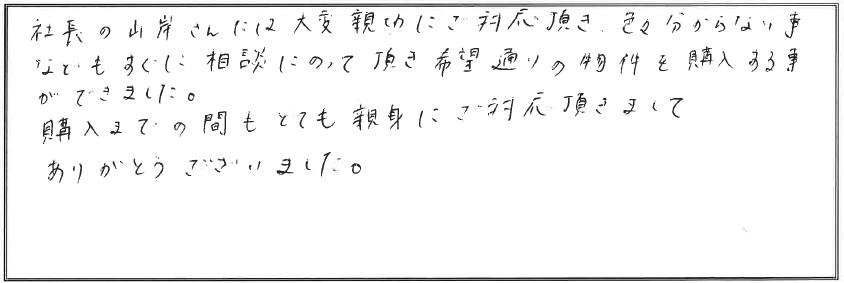 社長の山岸さんには大変親切にご対応頂き、色々分からない事
などもすぐに相談にのって頂き希望通りの物件を購入する事
ができました。
購入までの間もとても親身にご対応頂きまして
ありがとうございました。